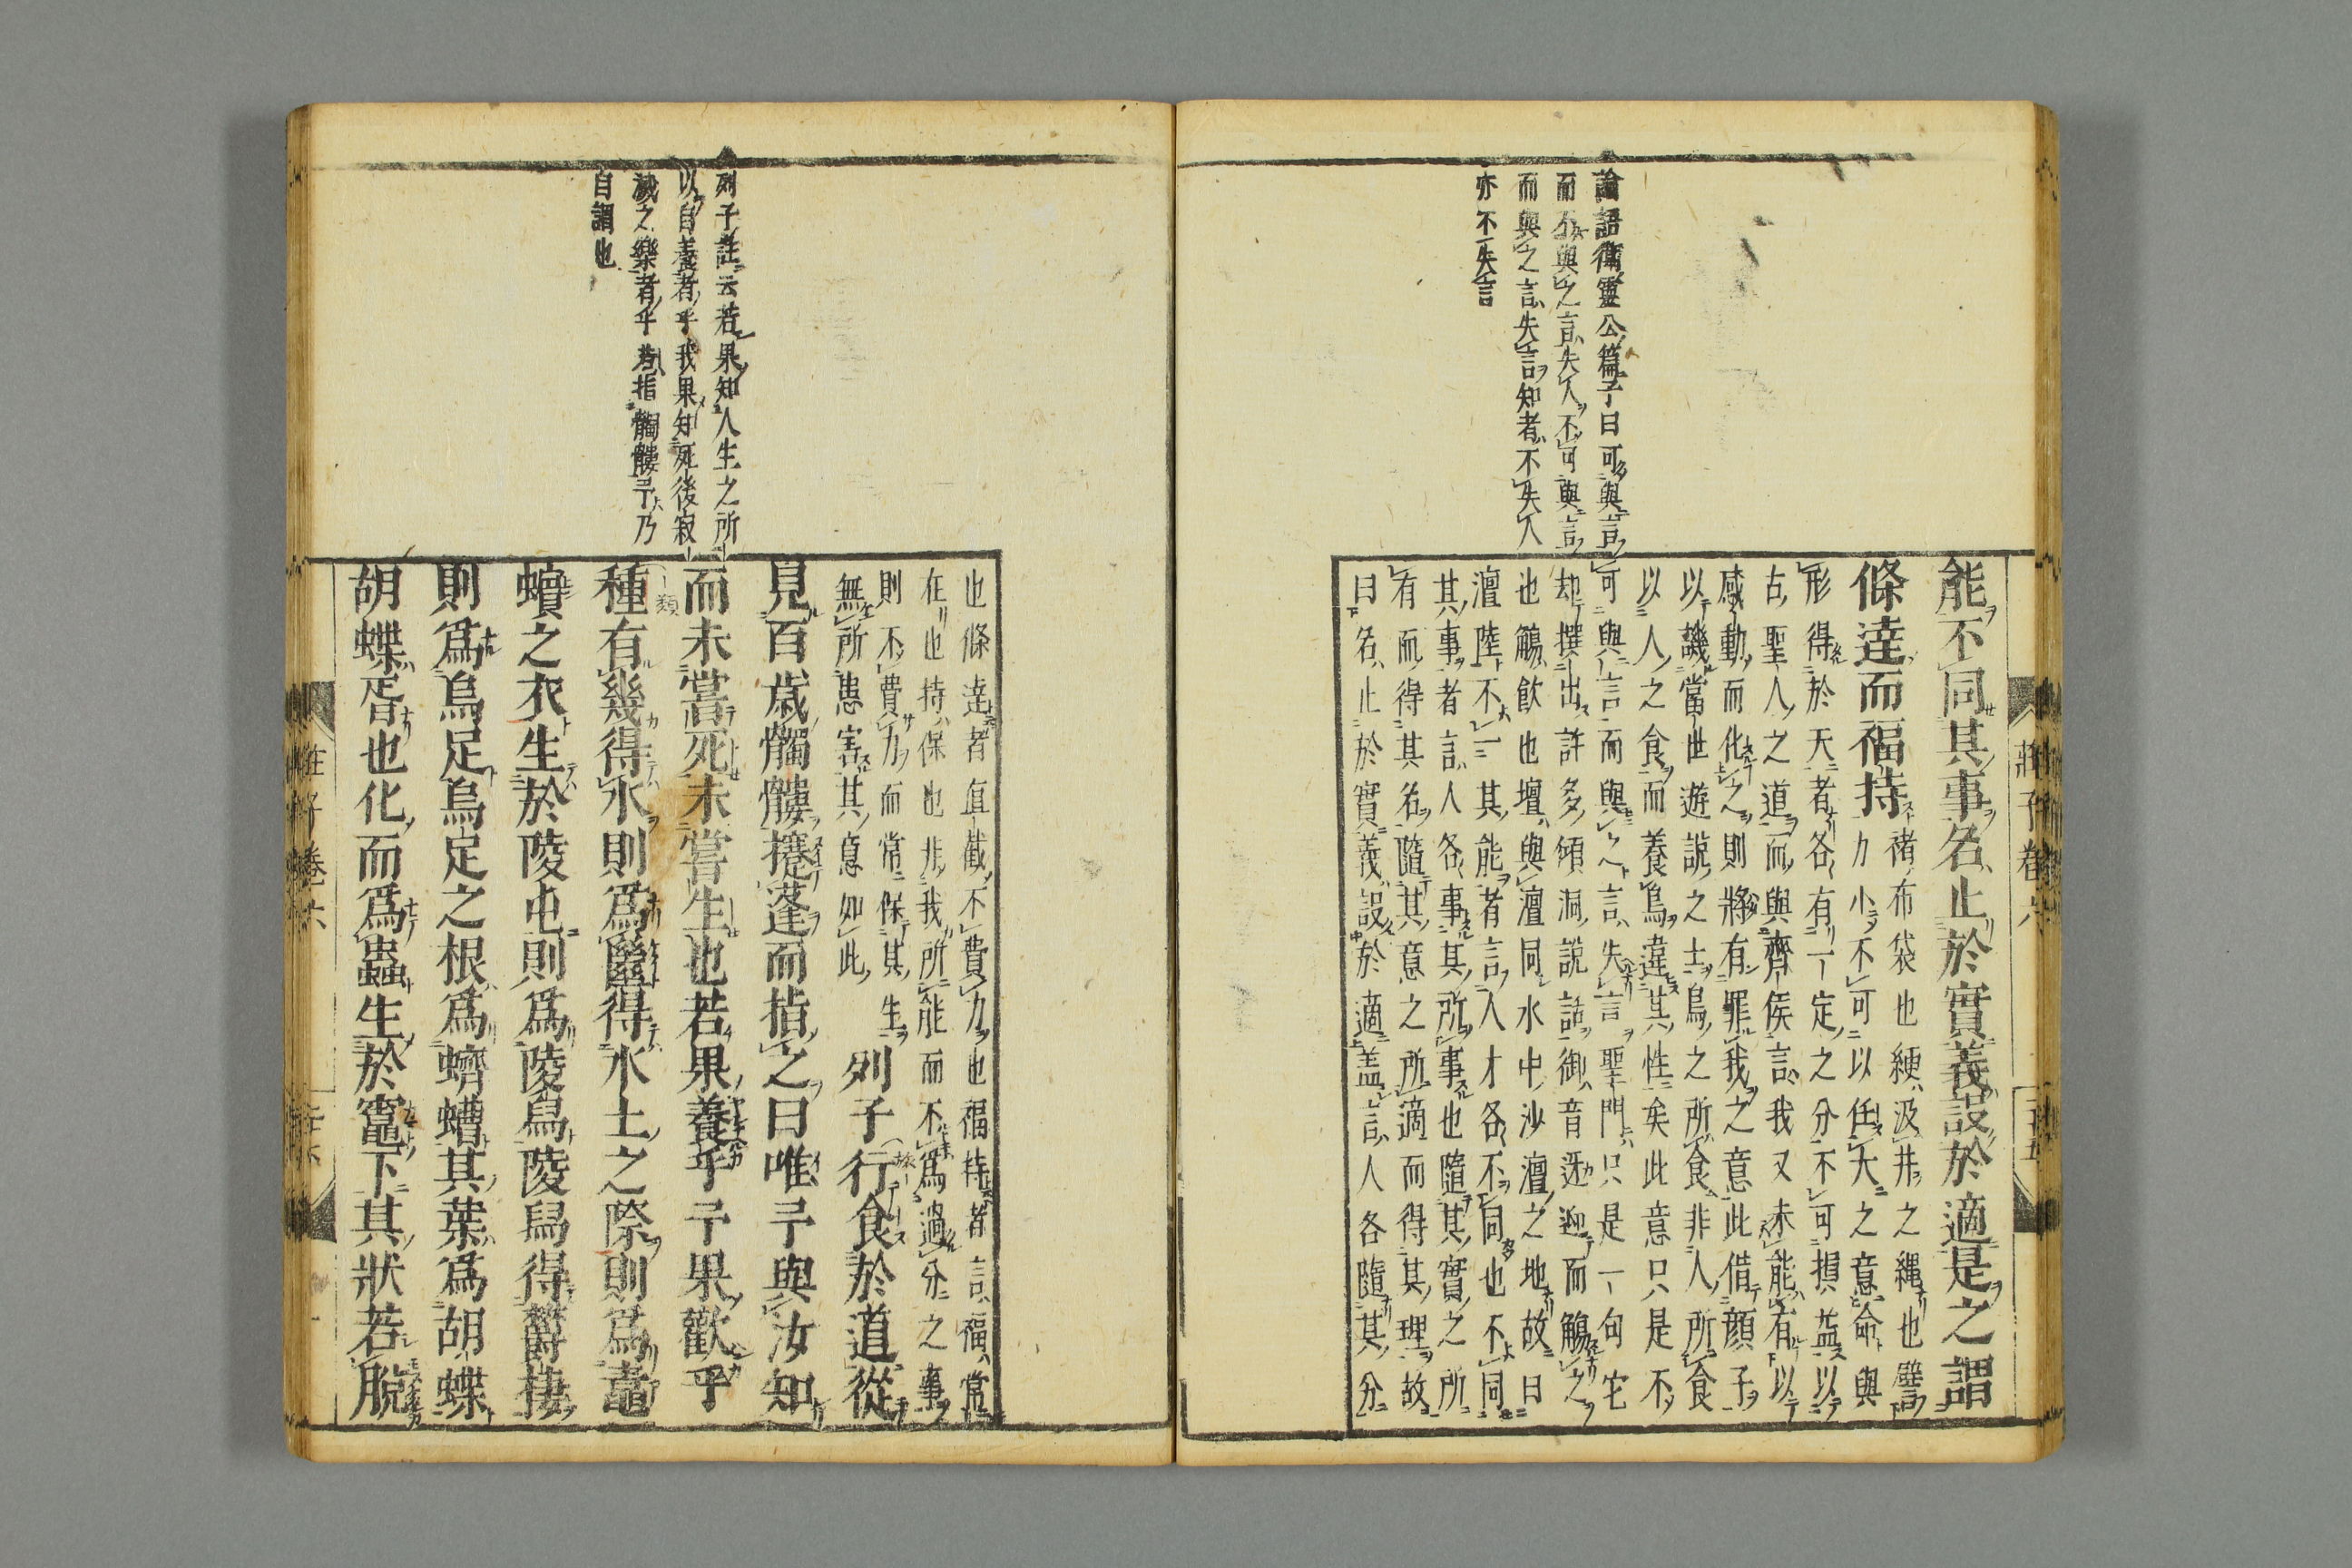 論語衛靈公篇子曰可與言
而不與之言失人不可與言
而與之言失言知者不失人
亦不失言
能不同其事名止於實義設於適是之謂
條達而福持
褚布袋也綆汲井之繩也譬
力小不可以任大之意命與
形得於天者各有一定之分不可損益以
古聖人之道而與齊侯言我又未能有以
感動而化之則將有罪我之意此借顏子
以譏當世遊說之士鳥之所食非人所食
以人之食而養鳥違其性矣此意只是不
可與言而與之言失言聖門只是一句它
却撰出許多傾洞說話御音迓迎而觴之
也觴飲也壇與澶同水中沙澶之地故曰
澶陸不一其能者言人才各不同也不同
其事者言人各事其所事也隨其實之所
有而得其名隨其意之所適而得其理故
曰名止於實義設於適蓋言人各隨其分
莊子卷六
二十五
列子註云若果知人生之所
以自養者乎我果知死後寂
滅之樂者乎若指髑髏予乃
自謂也
也條達者直截不費力也福持者言福常
在也持保也非我所能而不為過分之事
則不費力而常保其生
無所患害其意如此
列子行食於道從
見百歲髑髏攓蓬而指之曰唯予與汝知
而未嘗死未嘗生也若果養乎予果歡乎
種有幾得水則為㡭得水土之際則為鼃
蠙之衣生於陵屯則為陵舃陵舃得鬱棲
則為烏足烏足之根為蠐螬其葉為胡蝶
胡蝶胥也化而為蟲生於竈下其狀若脫
莊子卷六